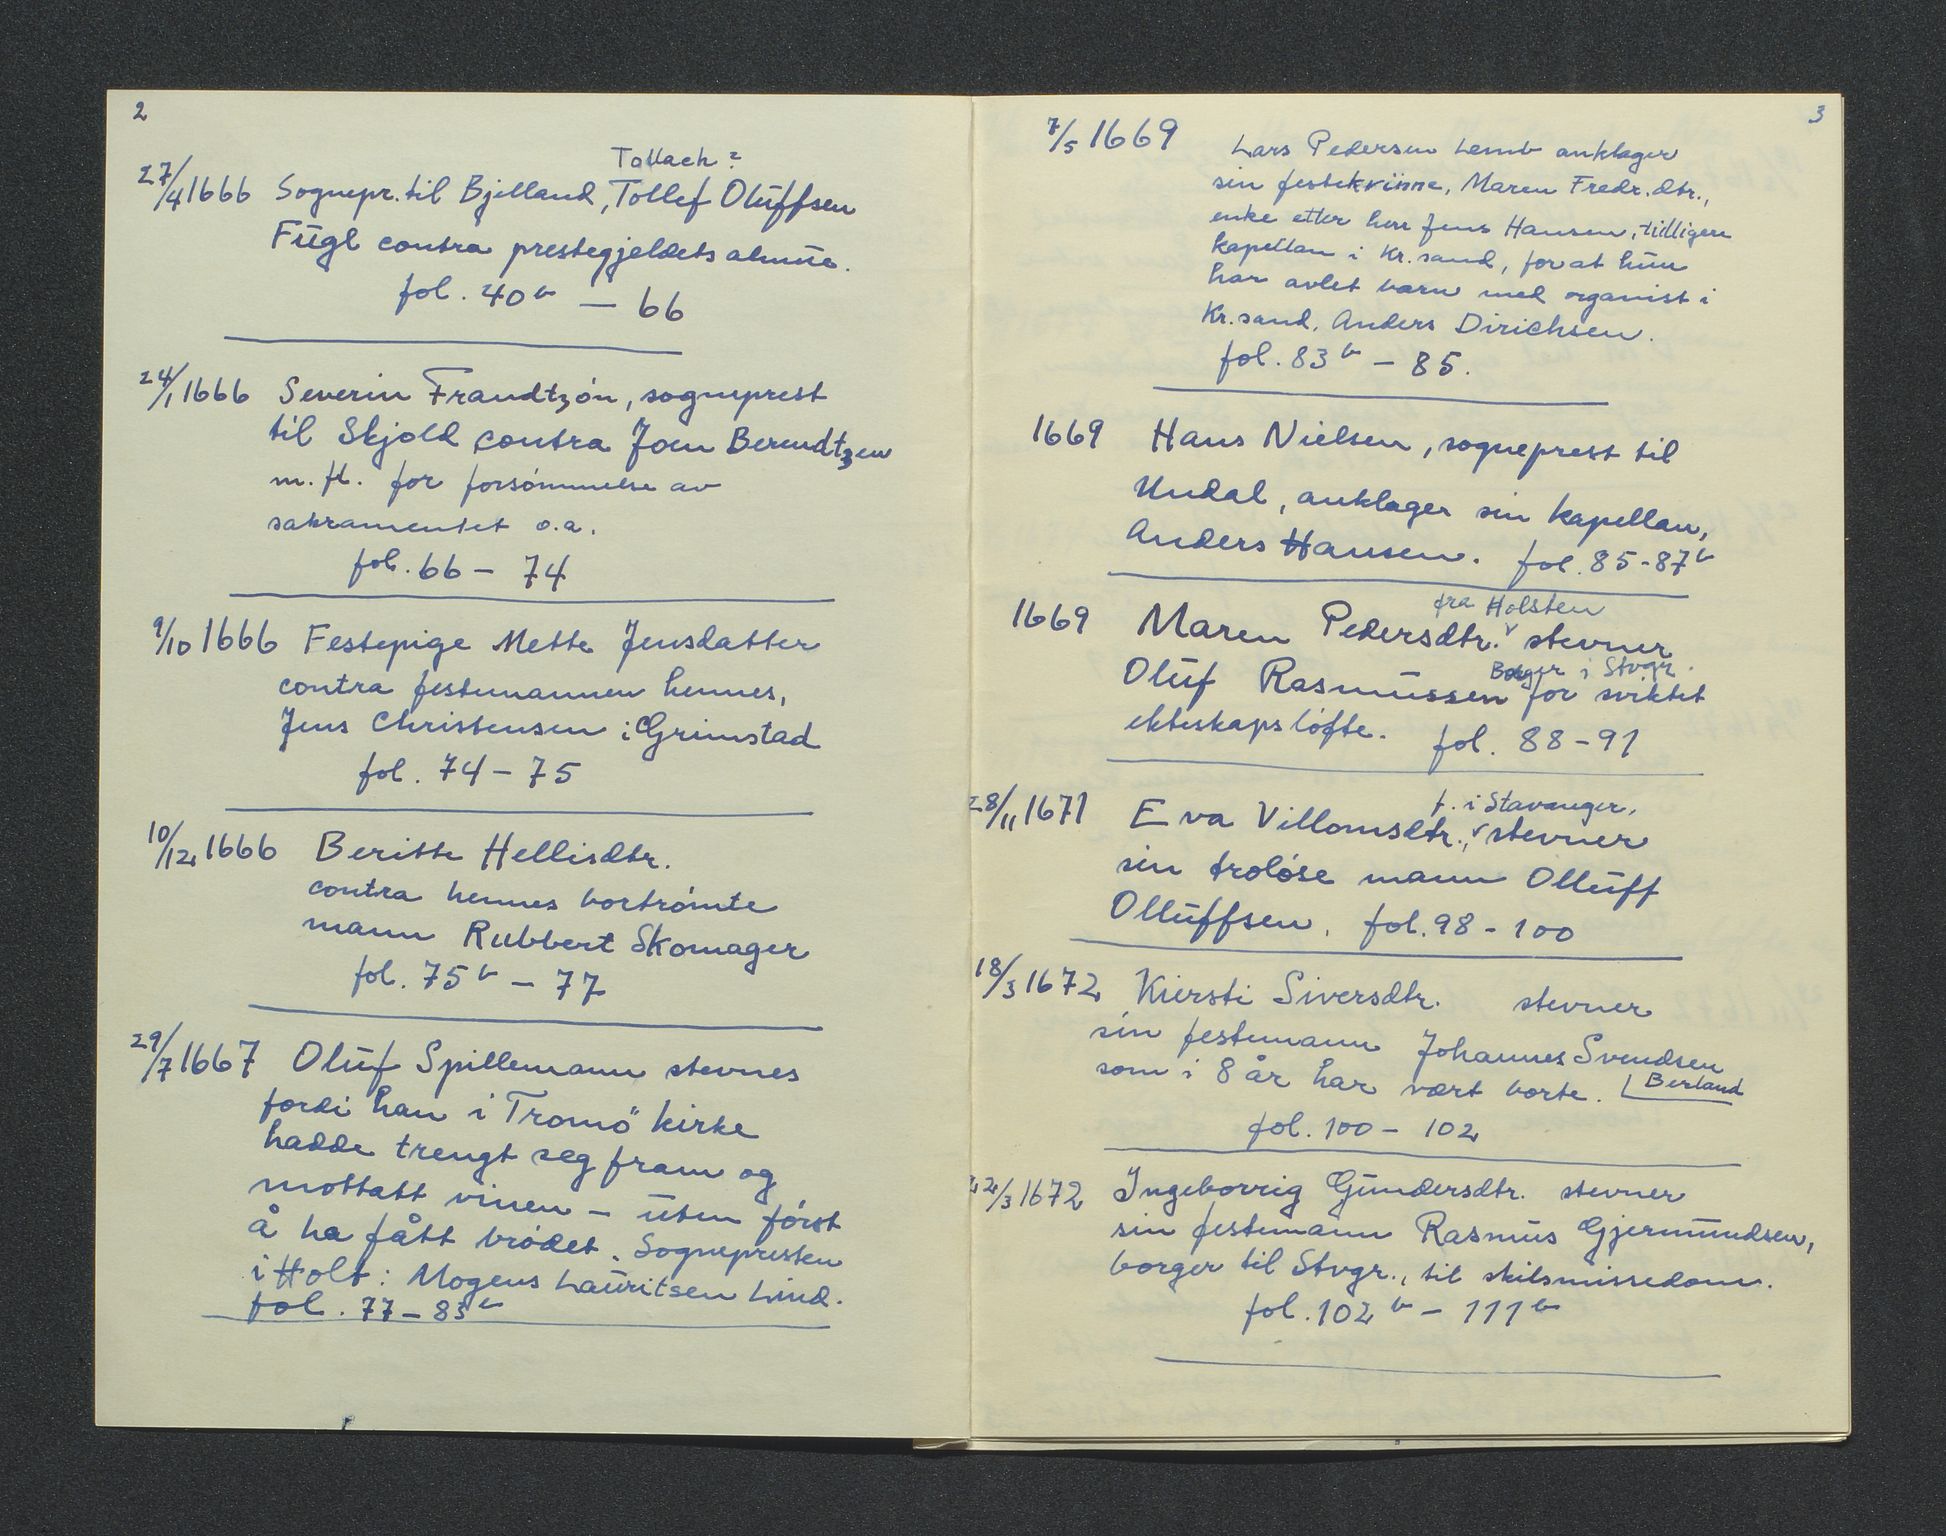 2
Tollach?
27/4 1666 Sognepr. til Bjelland, Tollef Oluffsen
Fugl contra prestegjeldets almue.
fol. 40b – 66
24/1 1666 Severin Frandtzøn, sogneprest
til Skjold contra Joen Berendtzen
m. fl. for forsømmelse av
sakramentet o.a.
fol. 66 – 74
9/10 1666 Festepige Mette Jensdatter
contra festemannen hennes,
Jens Christensen i Grimstad
fol. 74 – 75
10/12 1666 Beritte Hellisdtr.
contra hennes bortrømte
mann Rubbert Skomager
fol. 75b – 77
29/7 1667 Oluf Spillemann stevnes
fordi han i Tromö kirke
hadde trengt seg fram og
mottatt vinen – uten først
å ha fått brødet. Sognepresten
i Holt: Mogens Lauritsen Lind.
fol. 77 – 83b
3
7/5 1669 Lars Pedersen Lemb anklager
sin festekvinne, Maren Fredr.dtr.,
enke etter herr Jens Hansen, tidligere
kapellan i Kr.sand, for at hun
har avlet barn med organist i
Kr.sand, Anders Dirichsen.
fol. 83b – 85.
1669 Hans Nielsen, sogneprest til
Undal, anklager sin kapellan,
Anders Hansen. fol. 85-87b
fra Holsten
1669 Maren Pedersdtr. stevner
Borger i Stvgr.
Oluf Rasmussen for sviktet
ekteskapsløfte. fol. 88 – 91
f. i Stavanger,
28/11 1671 Eva Villomsdtr., stevner
sin troløse mann Olluff
Olluffsen. fol. 98 - 100
18/3 1672 Kiersti Siversdtr. stevner
sin festemann Johannes Svendsen
som i 8 år har vært borte. Berland
fol. 100 – 102
22/3 1672 Ingeborrig Gundersdtr. stevner
sin festemann Rasmus Gjermundsen,
borger til Stvgr., til skilsmissedom.
fol. 102b – 111b